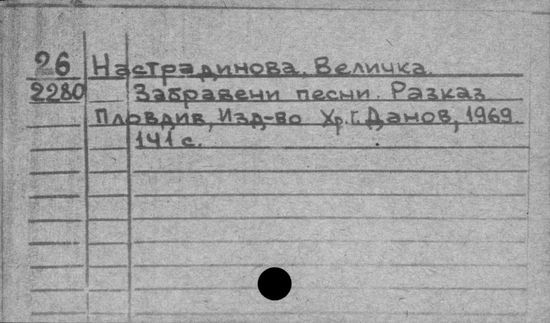 26 Настрадинова, Величка.
2280 Забравени песни. Разказ
Пловдив, Изд-во Хр. Г. Данов, 1969.
141 с.